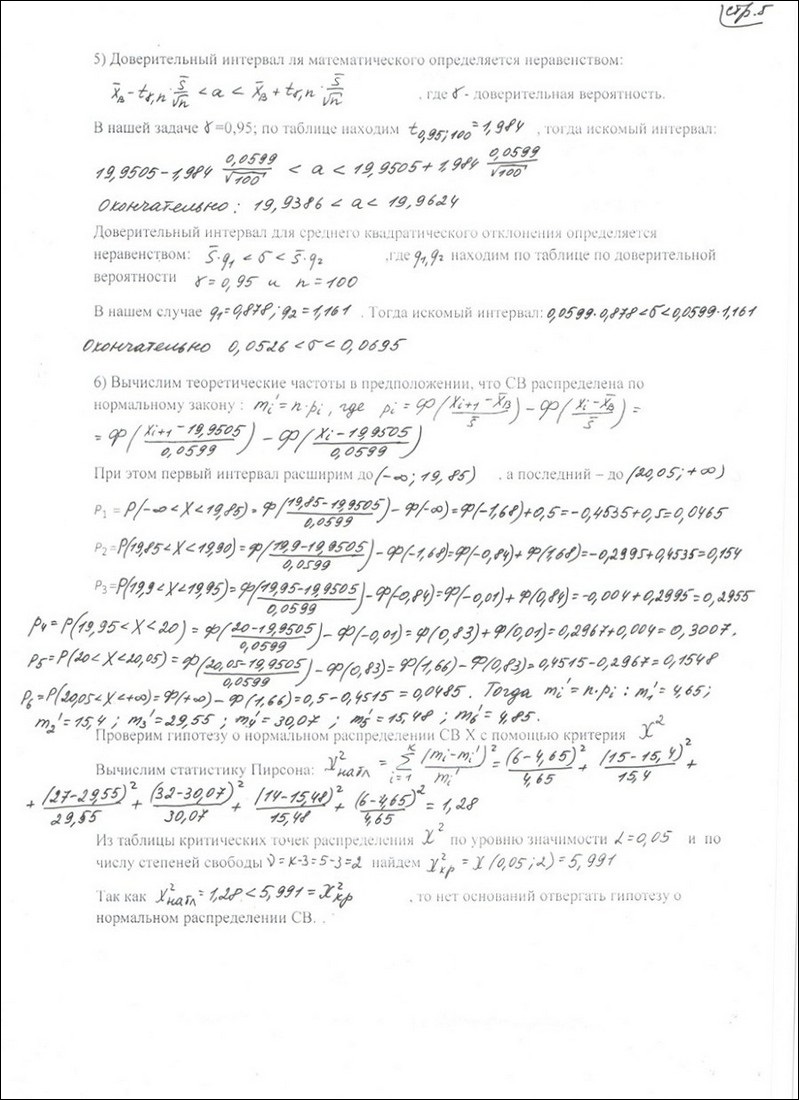 стр.5
5) Доверительный интервал ля математического определяется неравенством:
x̄в - tγ,n · s̄/√n < a < x̄в + tγ,n · s̄/√n , где γ - доверительная вероятность.
В нашей задаче γ =0,95; по таблице находим t0,95;100 = 1,984 , тогда искомый интервал:
19,9505 - 1,984 0,0599/√100 < a < 19,9505 + 1,984 0,0599/√100
Окончательно: 19,9386 < a < 19,9624
Доверительный интервал для среднего квадратического отклонения определяется
неравенством: s̄·q1 < σ < s̄·q2 ,где q1,q2 находим по таблице по доверительной
вероятности γ = 0,95 и n = 100
В нашем случае q1=0,878; q2=1,161 . Тогда искомый интервал: 0,0599·0,878<σ<0,0599·1,161
Окончательно 0,0526 < σ < 0,0695
6) Вычислим теоретические частоты в предположении, что СВ распределена по
нормальному закону : mi' = n·pi , где pi = Ф((xi+1 - x̄в)/s̄) - Ф((xi - x̄в)/s̄) =
= Ф((xi+1 - 19,9505)/0,0599) - Ф((xi - 19,9505)/0,0599)
При этом первый интервал расширим до (-∞; 19,85) , а последний – до (20,05; +∞)
P1 = P(-∞<X<19,85) = Ф((19,85-19,9505)/0,0599) - Ф(-∞) = Ф(-1,68)+0,5 = -0,4535+0,5 = 0,0465
P2 = P(19,85<X<19,90) = Ф((19,9-19,9505)/0,0599) - Ф(-1,68) = Ф(-0,84) + Ф(1,68) = -0,2995+0,4535=0,154
P3 = P(19,9<X<19,95) = Ф((19,95-19,9505)/0,0599) - Ф(-0,84) = Ф(-0,01) + Ф(0,84) = -0,004+0,2995 = 0,2955
P4 = P(19,95<X<20) = Ф((20-19,9505)/0,0599) - Ф(-0,01) = Ф(0,83) + Ф(0,01) = 0,2967+0,004 = 0,3007.
P5 = P(20<X<20,05) = Ф((20,05-19,9505)/0,0599) - Ф(0,83) = Ф(1,66) - Ф(0,83) = 0,4515-0,2967 = 0,1548
P6 = P(20,05<X<+∞) = Ф(+∞) - Ф(1,66) = 0,5-0,4515 = 0,0485. Тогда mi' = n·pi : m1' = 4,65;
m2' = 15,4 ; m3' = 29,55 ; m4' = 30,07 ; m5' = 15,48 ; m6' = 4,85.
Проверим гипотезу о нормальном распределении СВ X с помощью критерия χ²
Вычислим статистику Пирсона: χ²набл = Σ(i=1..k) (mi-mi')²/mi' = (6-4,65)²/4,65 + (15-15,4)²/15,4 +
+ (27-29,55)²/29,55 + (32-30,07)²/30,07 + (14-15,48)²/15,48 + (6-4,65)²/4,65 = 1,28
Из таблицы критических точек распределения χ² по уровню значимости α=0,05 и по
числу степеней свободы ν = k-3 = 5-3 = 2 найдем χ²кр = χ(0,05; 2) = 5,991
Так как χ²набл = 1,28 < 5,991 = χ²кр , то нет оснований отвергать гипотезу о
нормальном распределении СВ. .